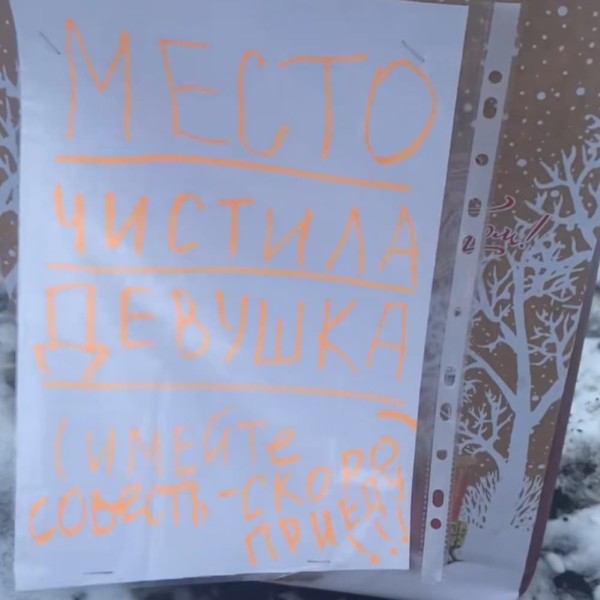 МЕСТО
ЧИСТИЛА
ДЕВУШКА
(ИМЕЙТЕ
СОВЕСТЬ-СКОРО
ПРИЕДУ!!!)